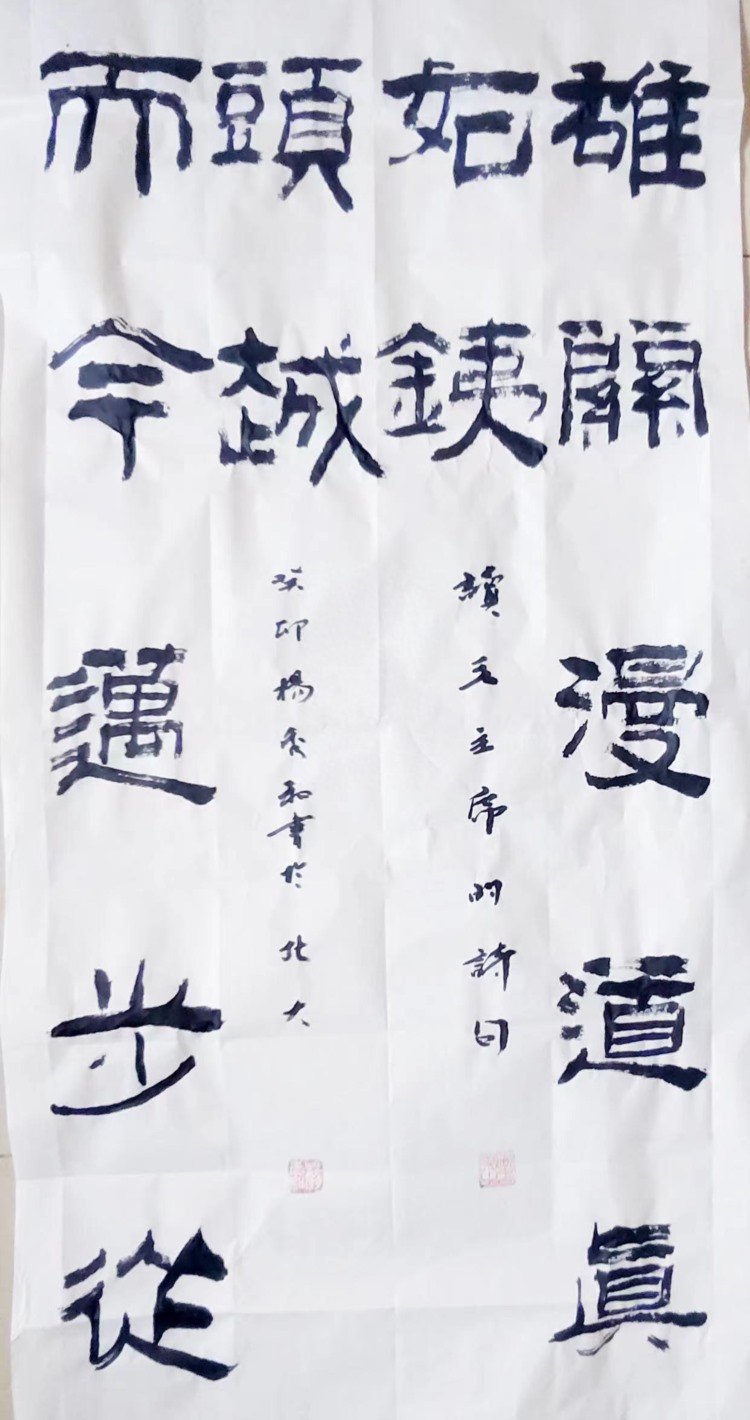 雄關漫道眞
如銕
讀毛主席的詩曰
頭越
癸卯楊和書於北大
而今邁步從